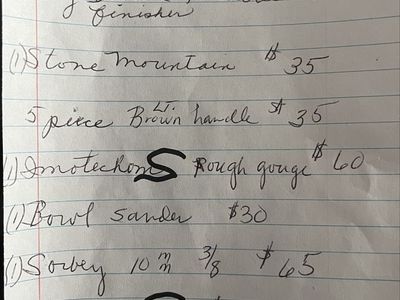 finisher
(1) Stone Mountain $ 35
5 piece Lt. Brown handle $ 35
(1) Imotechom S Rough gouge $ 60
(1) Bowl sander $30
(1) Sorbey 10 mm 3/8 $ 65